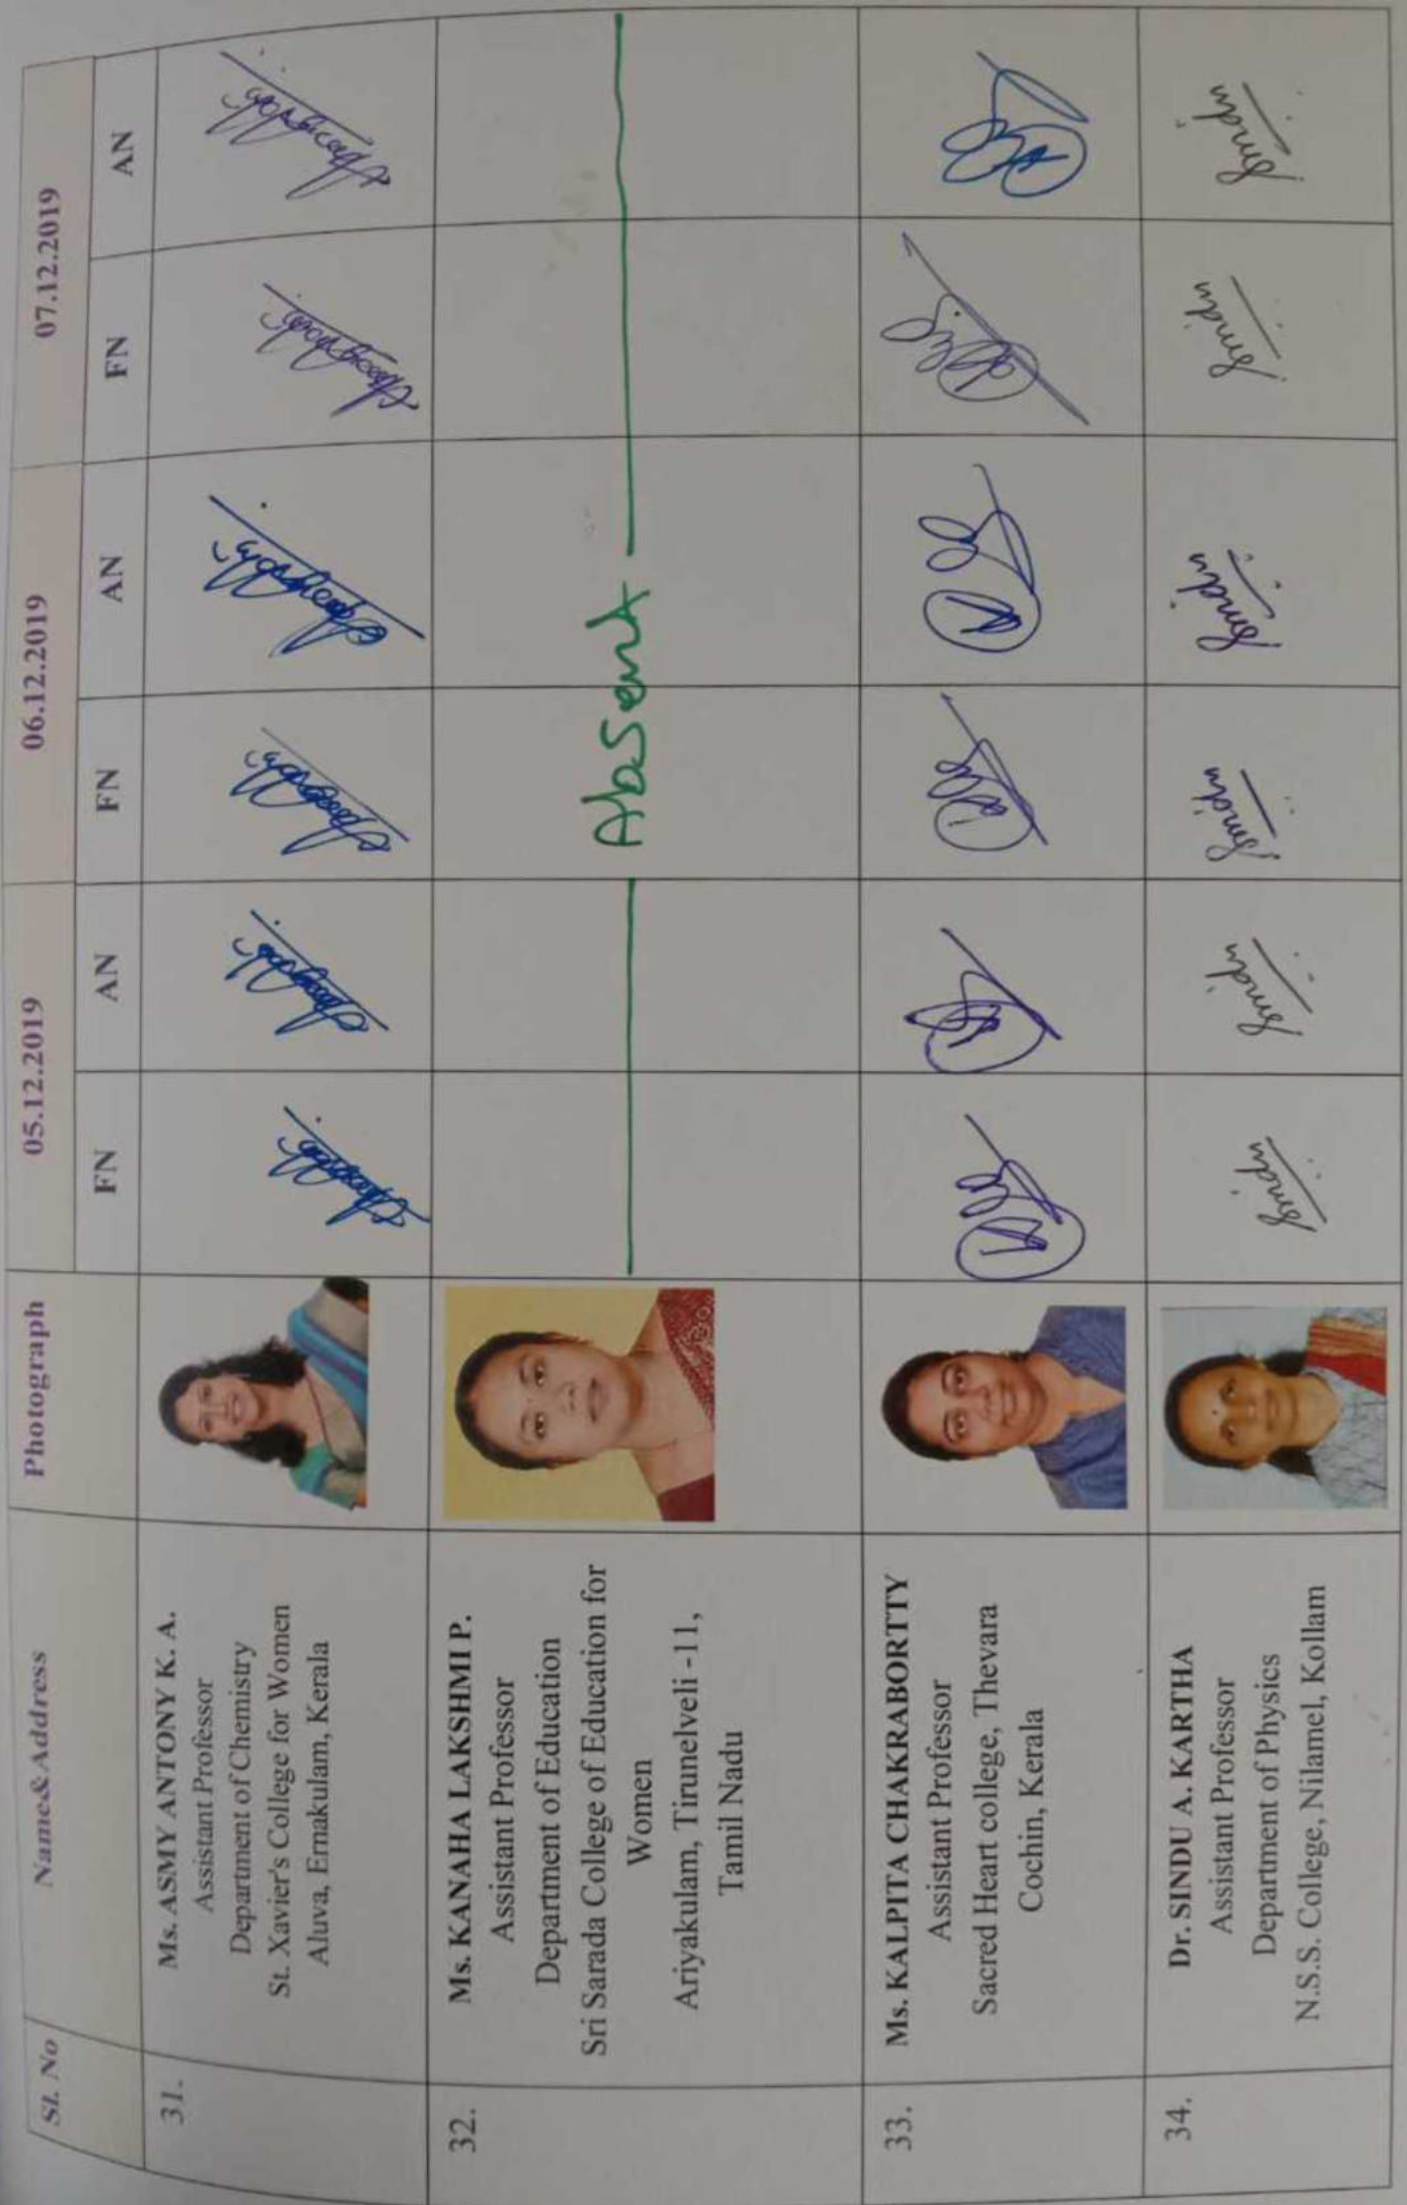 Sl. No Name&Address Photograph 05.12.2019 06.12.2019 07.12.2019
FN AN FN AN FN AN
31.
Ms. ASMY ANTONY K. A.
Assistant Professor
Department of Chemistry
St. Xavier's College for Women
Aluva, Ernakulam, Kerala
32.
Ms. KANAHA LAKSHMI P.
Assistant Professor
Department of Education
Sri Sarada College of Education for
Women
Ariyakulam, Tirunelveli -11,
Tamil Nadu
Absent
33.
Ms. KALPITA CHAKRABORTTY
Assistant Professor
Sacred Heart college, Thevara
Cochin, Kerala
34.
Dr. SINDU A. KARTHA
Assistant Professor
Department of Physics
N.S.S. College, Nilamel, Kollam